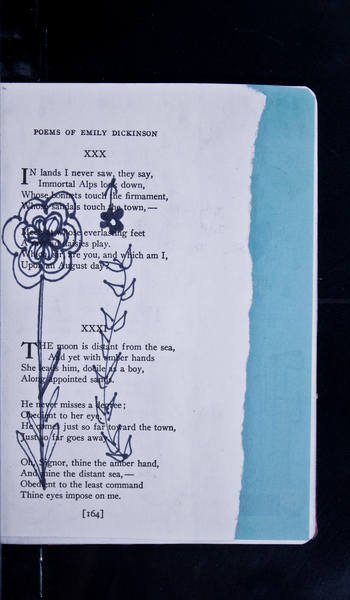 POEMS OF EMILY DICKINSON
XXX
IN lands I never saw, they say,
Immortal Alps look down,
Whose bonnets touch the firmament,
Whose sandals touch the town,—
Meek at whose everlasting feet
A myriad daisies play.
Which, sir, are you, and which am I,
Upon an August day?
XXXI
THE moon is distant from the sea,
And yet with amber hands
She leads him, docile as a boy,
Along appointed sands.
He never misses a degree;
Obedient to her eye,
He comes just so far toward the town,
Just so far goes away.
Oh, Signor, thine the amber hand,
And mine the distant sea,—
Obedient to the least command
Thine eyes impose on me.
[164]